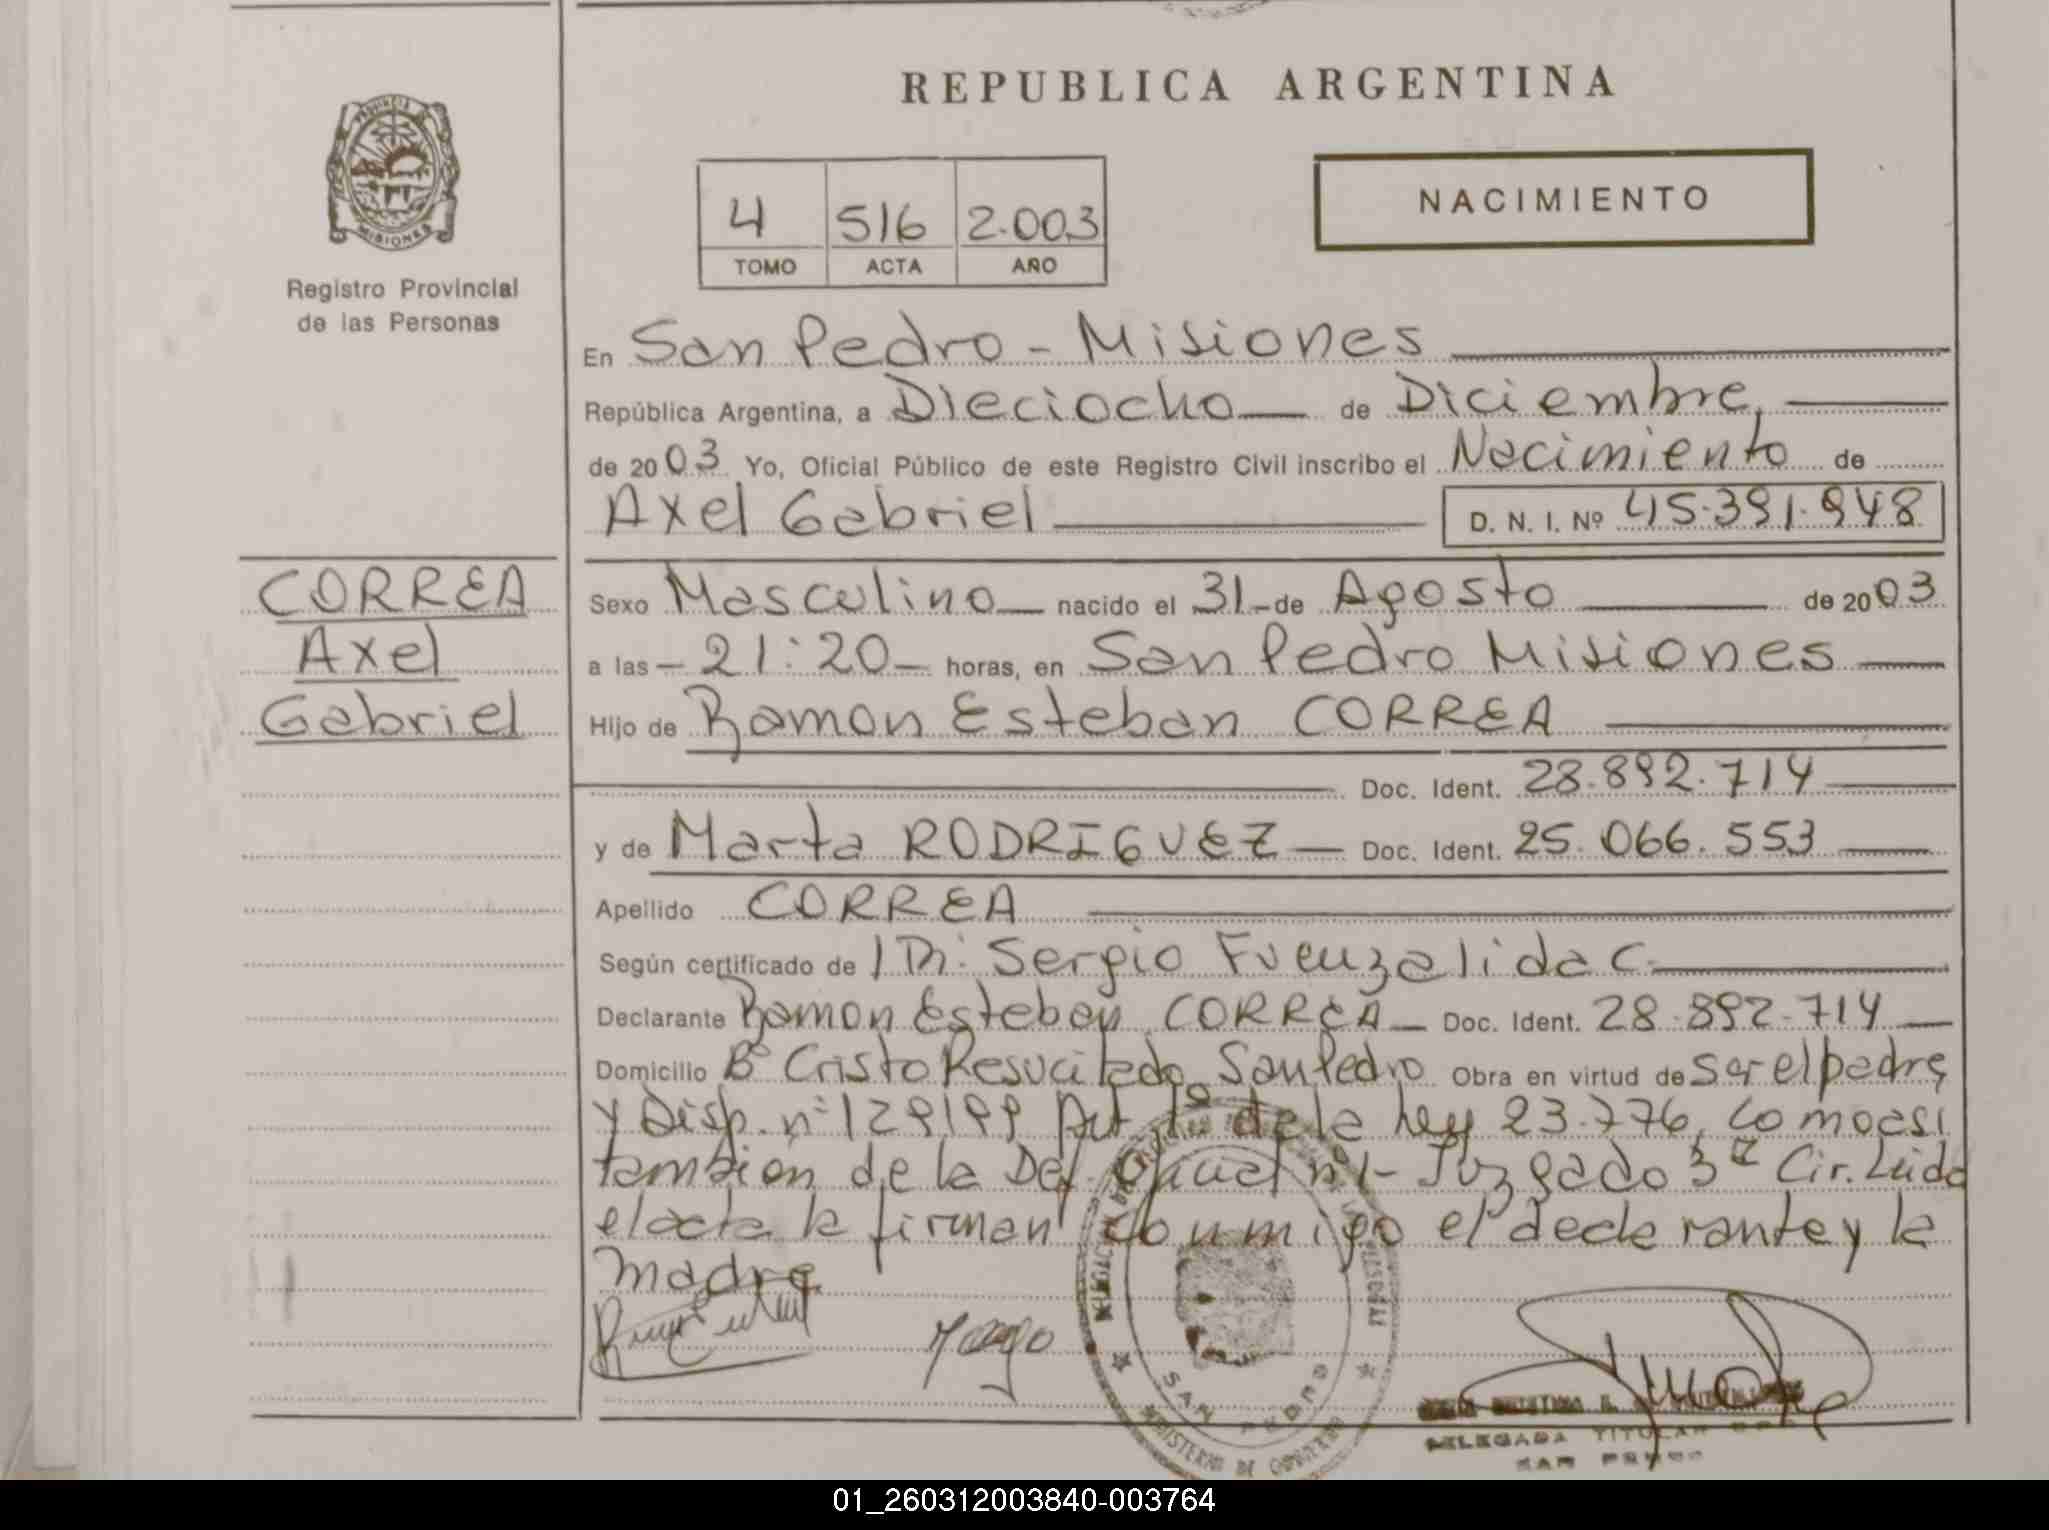 REPUBLICA ARGENTINA
PROVINCIA
MISIONES
Registro Provincial
de las Personas
4 516 2.003
TOMO ACTA AÑO
NACIMIENTO
En San Pedro - Misiones
República Argentina, a Dieciocho de Diciembre,
de 2003 Yo, Oficial Público de este Registro Civil inscribo el Nacimiento de
Axel Gabriel
D. N. I. Nº 45.391.948
CORREA
Axel
Gabriel
Sexo Masculino nacido el 31 - de Agosto de 2003
a las - 21:20 - horas, en San Pedro Misiones
Hijo de Ramon Esteban CORREA
Doc. Ident. 28.892.714
y de Marta RODRIGUEZ - Doc. Ident. 25.066.553
Apellido CORREA
Según certificado de Sergio Fuenzalida C.
Declarante Ramon Esteban CORREA - Doc. Ident. 28.892.714
Domicilio Bº Cristo Resucitado San Pedro Obra en virtud de ser el padre
y Disp. nº Art 1º de la Ley 23.776, como asi
tambien de la Def. Oficial nº 1 - Juzgado 3ª Cir. Leida
el acta la firman conmigo el declarante y la
madre
SAN PEDRO
MINISTERIO DE GOBIERNO
DELEGADA TITULAR
SAN PEDRO
01_260312003840-003764